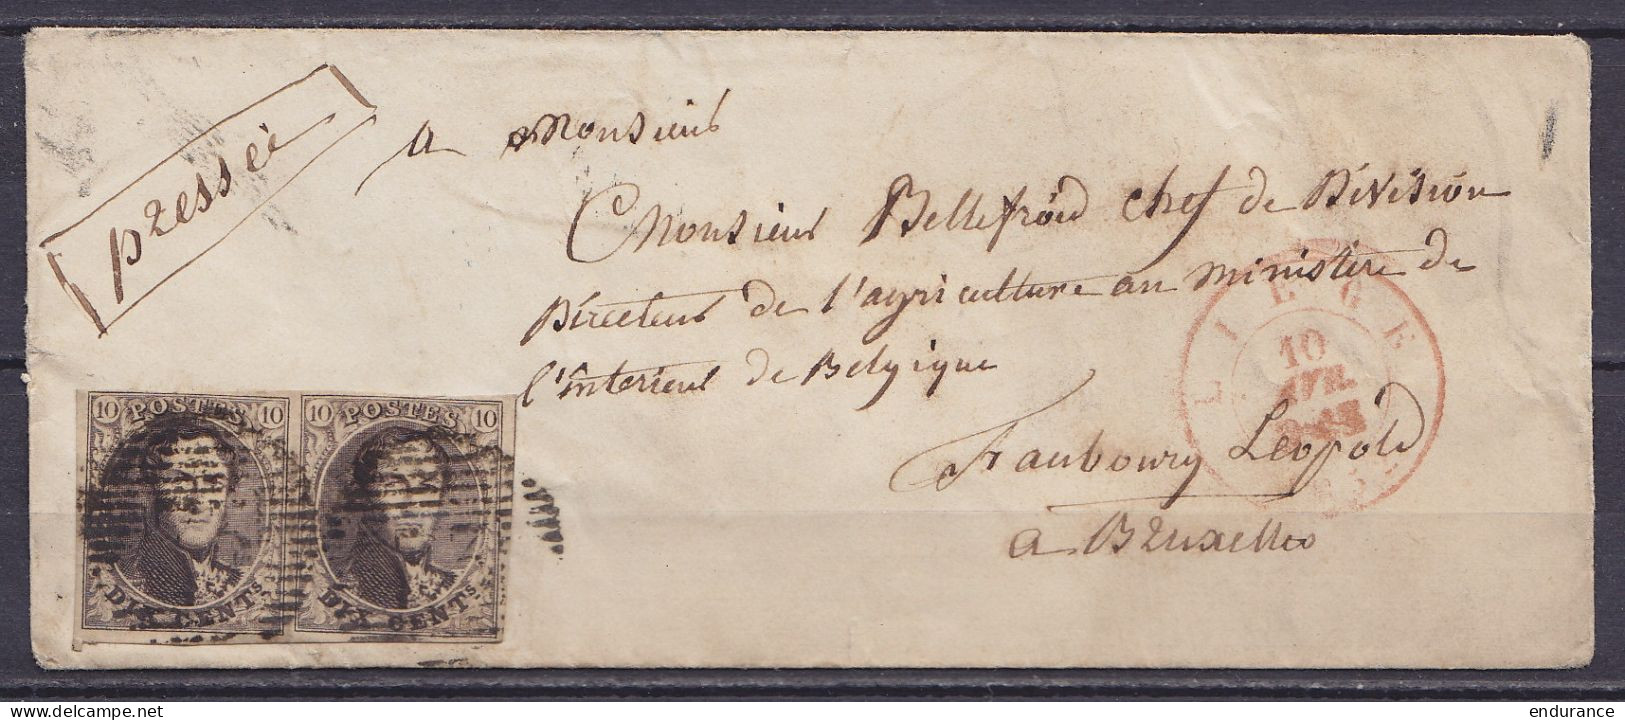 pressée
a Monsieur
Monsieur Bellefroid chef de Division
Directeur de l'agriculture au ministère de
l'intérieur de Belgique
Faubourg Léopold
a Bruxelles
LIEGE
10
AVR.
10 POSTES 10
DIX CENTS
10 POSTES 10
DIX CENTS
delcampe.net
endurance